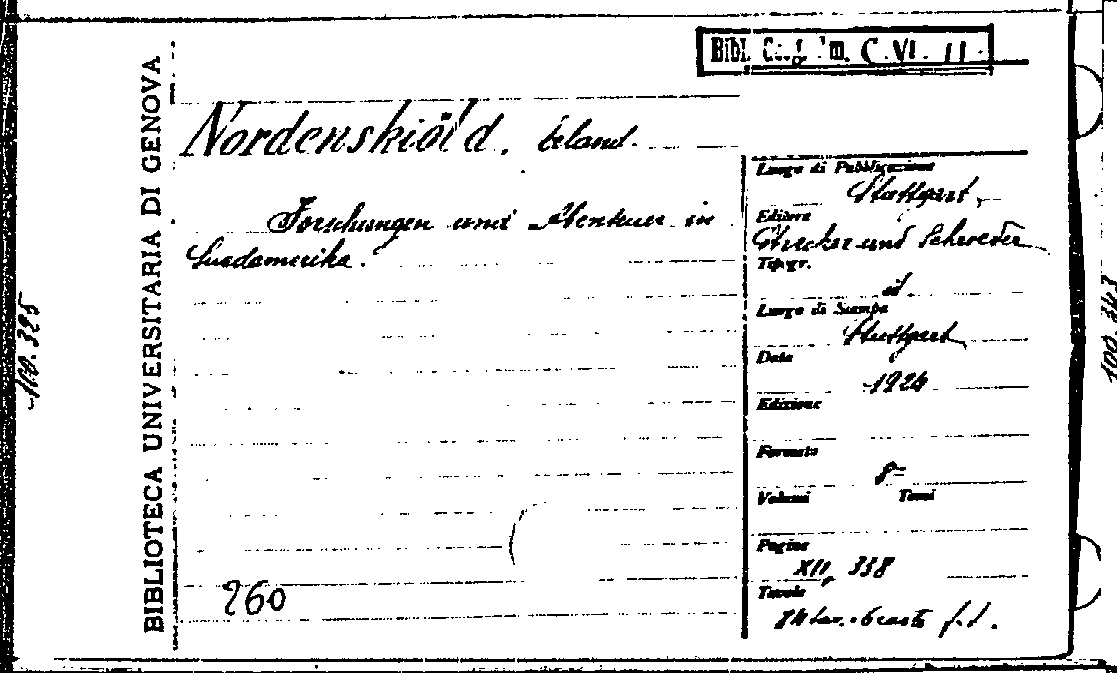 Bibl. C. VI. 11.
Nordenskiöld. Erland.
Forschungen und Abenteuer in
Suedamerika.
260
BIBLIOTECA UNIVERSITARIA DI GENOVA
100.325
Luogo di Pubblicazione
Stuttgart
Editore
Strecker und Schroeder
Tipogr.
id
Luogo di Stampa
Stuttgart
Data
1924
Edizione
Formato
8=
Volumi Tomi
Pagine
XII, 338
Tavole
f.t.
100.343